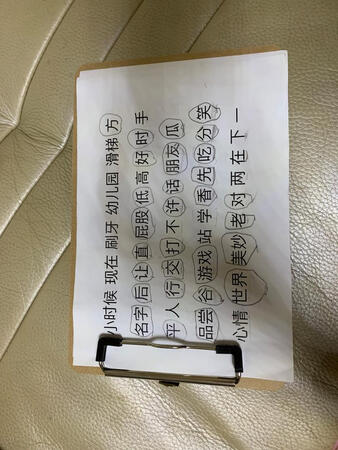 小时候 现在 刷牙 幼儿园 滑梯 方
名字 后 让 直 屁股 低 高 好 时 手
平 人 行 交 打 不 许 话 朋友 瓜
品尝 谷 游戏 站 学 香 先 吃 分 笑
心情 世界 美妙 老 对 两 在 下 一